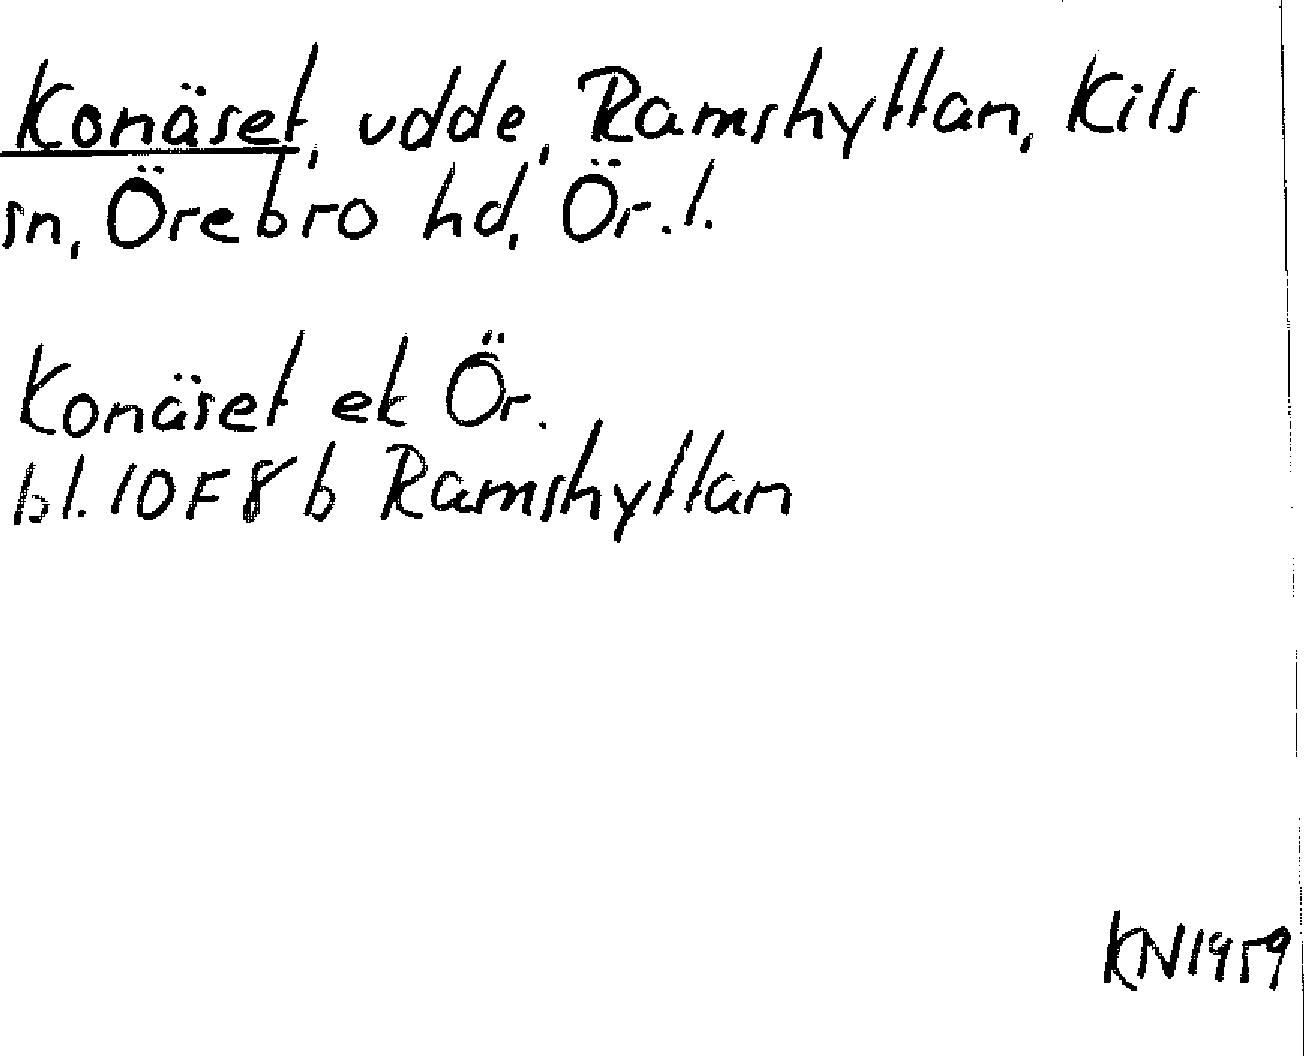 Konäset, udde, Ramshyttan, Kils
sn, Örebro hd, Ör. l.
Konäset ek Ör.
bl. 10 F 8 b Ramshyttan
KN 1959